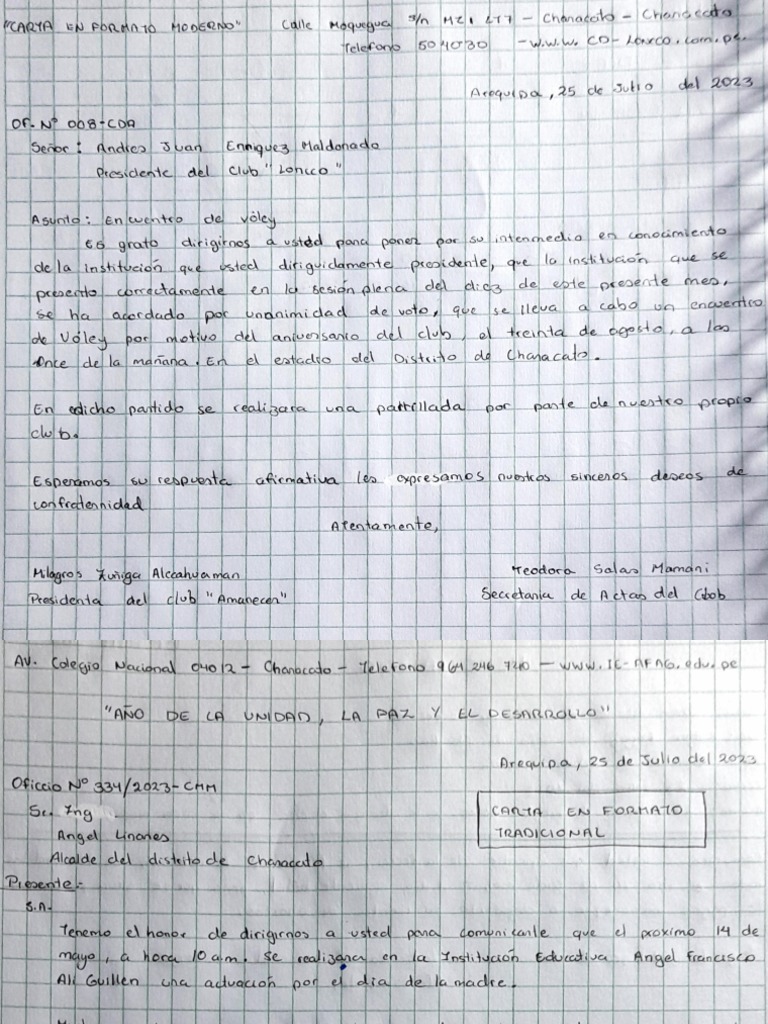 "CARTA EN FORMATO MODERNO" Calle Moquegua s/n MZ1 LT7 - Characato - Characato
Telefono 504030 - W.W.W. CO-Loncco.com.pe.
Arequipa, 25 de Julio del 2023
Of. Nº 008-CDA
Señor: Andres Juan Enriquez Maldonado
Presidente del Club "Loncco"
Asunto: Encuentro de vóley
Es grato dirigirnos a usted para poner por su intermedio en conocimiento
de la institución que usted diriguidamente presidente, que la institución que se
presento correctamente en la sesión plena del diez de este presente mes,
se ha acordado por unanimidad de voto, que se lleva a cabo un encuentro
de Vóley por motivo del aniversario del club, el treinta de agosto, a las
Once de la mañana. En el estadio del Distrito de Characato.
En dicho partido se realizara una parrillada por parte de nuestro propio
club.
Esperamos su respuesta afirmativa les expresamos nuestros sinceros deseos de
confraternidad
Atentamente,
Milagros Zuñiga Alccahuaman Teodora Salas Mamani
Presidenta del club "Amanecer" Secretaria de Actas del
AV. Colegio Nacional 04012 - Characato - Telefono 964 246 720 - WWW.IE-AFAG.edu.pe
"AÑO DE LA UNIDAD, LA PAZ Y EL DESARROLLO"
Arequipa, 25 de Julio del 2023
Oficcio Nº 334/2023-CMM
CARTA EN FORMATO
TRADICIONAL
Sr. Ing
Angel Linares
Alcalde del distrito de Characato
Presente.-
S.A.
Tenemo el honor de dirigirnos a usted para comunicarle que el proximo 14 de
mayo, a hora 10 a.m. se realizara en la Institución Educativa Angel Francisco
Ali Guillen una actuación por el dia de la madre.